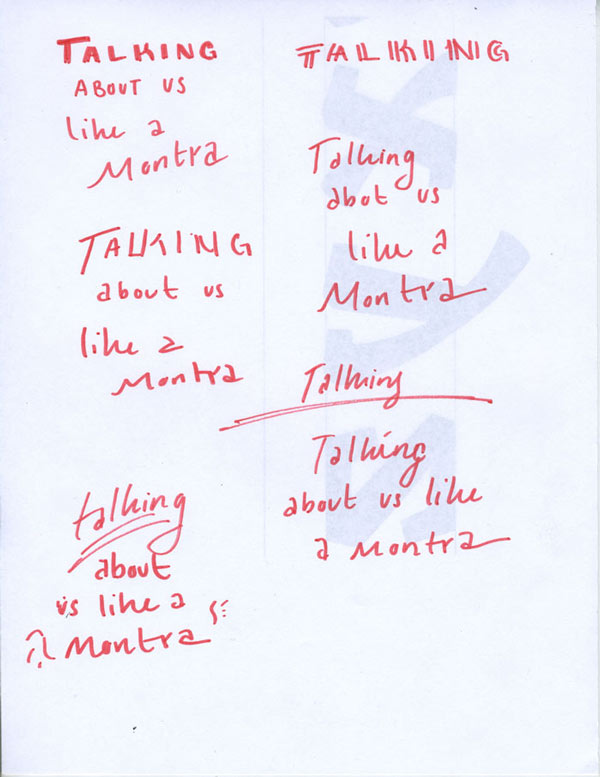 TALKING
ABOUT US
like a
Montra
TALKING
about us
like a
Montra
talking
about
us like a
Montra
TALKING
Talking
abot us
like a
Montra
Talking
Talking
about us like
a Montra